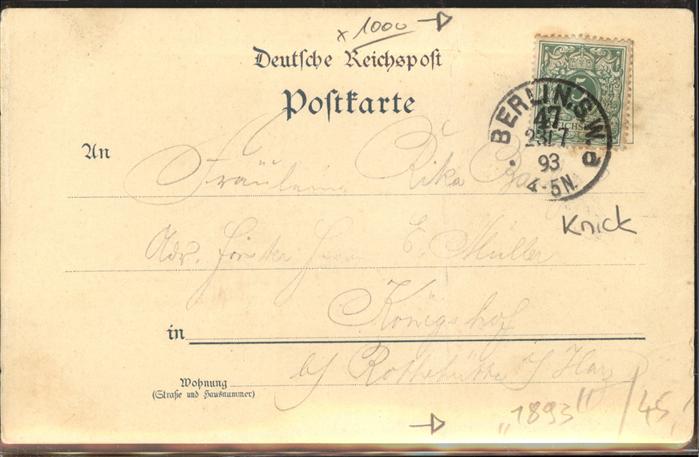 x 1000
Deutsche Reichspost
Postkarte
5
BERLIN.S.W.
47
23 7
93
4-5N.
d
An
Fräulein Rika
Knick
Adr. Förster Herrn E. Müller
Königshof
in
b/ Rothehütte i/ Harz
Wohnung
(Straße und Hausnummer)
"1893" /45,